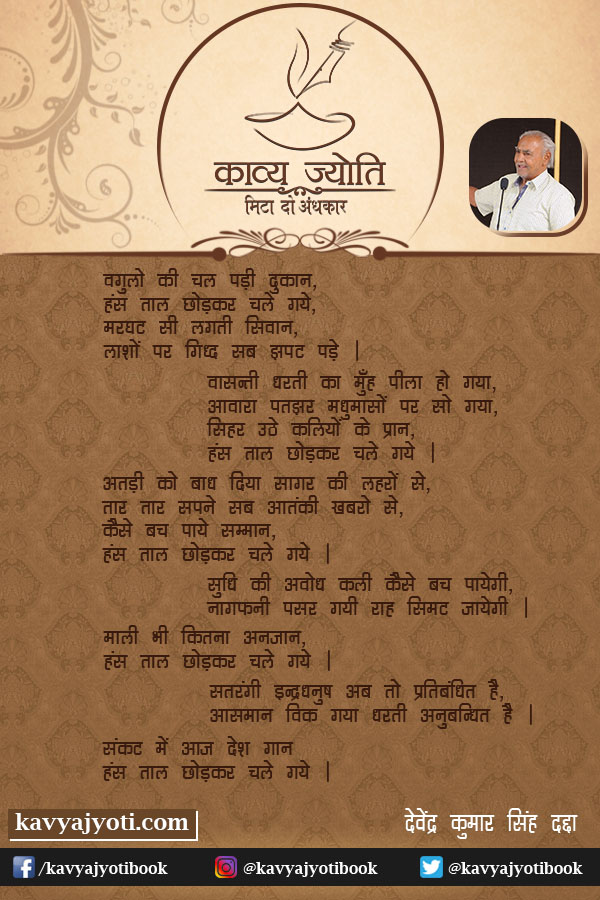 काव्य ज्योति
मिटा दो अंधकार
वगुलो की चल पड़ी दुकान,
हंस ताल छोड़कर चले गये,
मरघट सी लगती सिवान,
लाशों पर गिध्द सब झपट पड़े |
वासन्ती धरती का मुँह पीला हो गया,
आवारा पतझर मधुमासों पर सो गया,
सिहर उठे कलियों के प्रान,
हंस ताल छोड़कर चले गये |
अतड़ी को बाध दिया सागर की लहरों से,
तार तार सपने सब आतंकी खबरो से,
कैसे बच पाये सम्मान,
हंस ताल छोड़कर चले गये |
सुधि की अवोध कली कैसे बच पायेगी,
नागफनी पसर गयी राह सिमट जायेगी |
माली भी कितना अनजान,
हंस ताल छोड़कर चले गये |
सतरंगी इन्द्रधनुष अब तो प्रतिबंधित है,
आसमान विक गया धरती अनुबन्धित है |
संकट में आज देश गान
हंस ताल छोड़कर चले गये |
kavyajyoti.com
देवेंद्र कुमार सिंह दद्दा
/kavyajyotibook
@kavyajyotibook
@kavyajyotibook